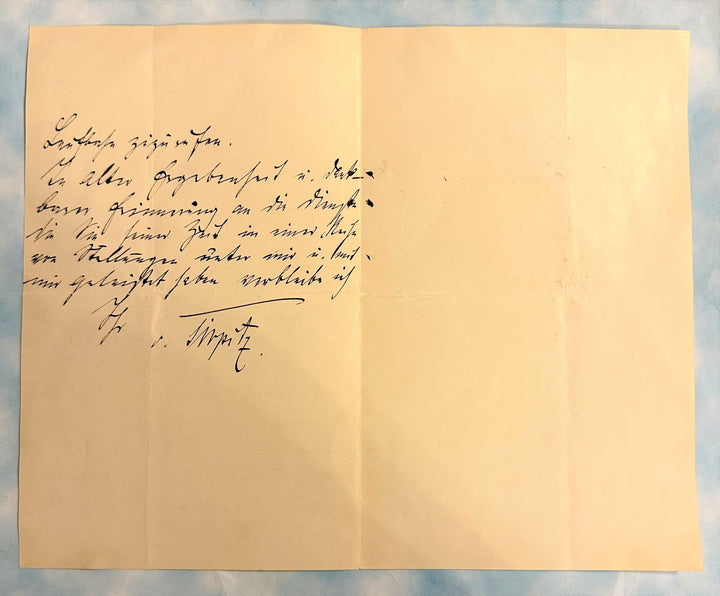 Laufbahn zuzurufen.
In alter Ergebenheit u. dank-
barer Erinnerung an die Dienste
die Sie seiner Zeit in einer Reihe
von Stellungen unter mir u. mit
mir geleistet haben verbleibe ich
Ihr
v. Tirpitz.